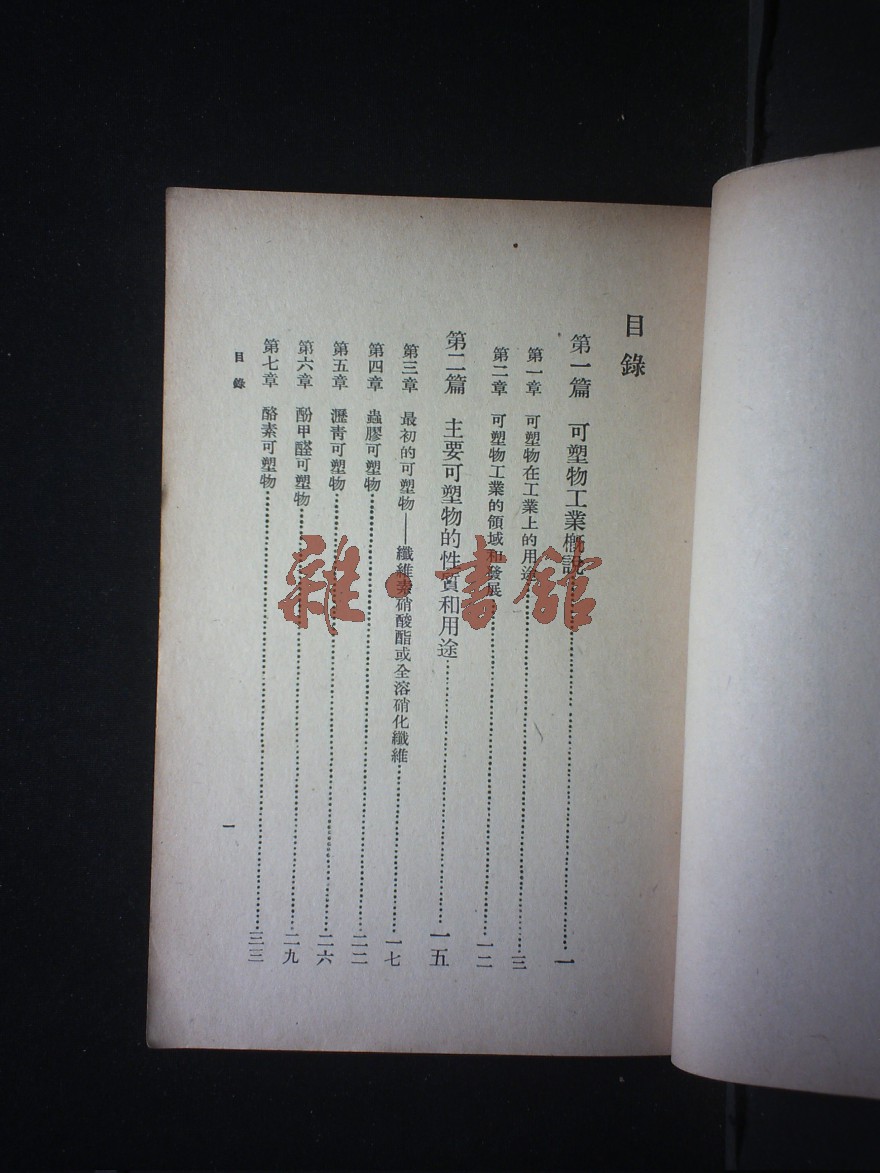 目錄
第一篇 可塑物工業概說……一
第一章 可塑物在工業上的用途……三
第二章 可塑物工業的領域和發展……一二
第二篇 主要可塑物的性質和用途……一五
第三章 最初的可塑物——纖維素硝酸酯或全溶硝化纖維……一七
第四章 蟲膠可塑物……二二
第五章 瀝青可塑物……二六
第六章 酚甲醛可塑物……二九
第七章 酪素可塑物……三三
目錄
一
雜·書館